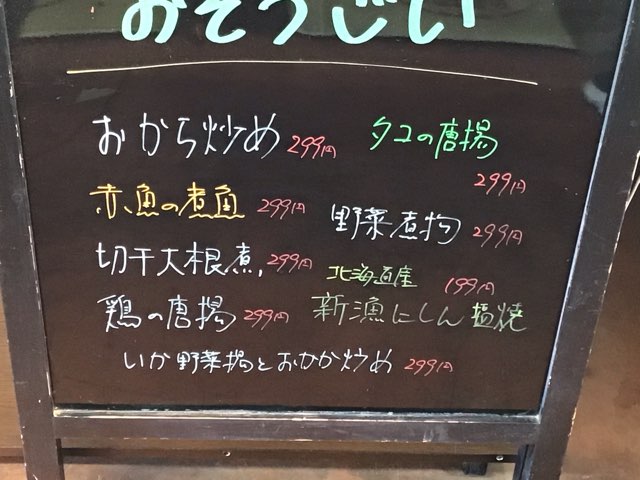 おそうざい
おから炒め 299円
タコの唐揚
299円
赤魚の煮魚 299円
野菜煮物 299円
切干大根煮 299円
北海道産 199円
新漁にしん塩焼
鶏の唐揚 299円
いか野菜揚とおかか炒め 299円